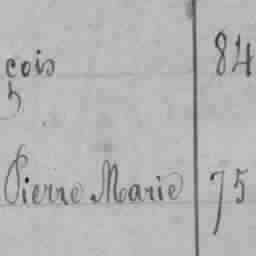 cois 84
h
Pierre Marie 75